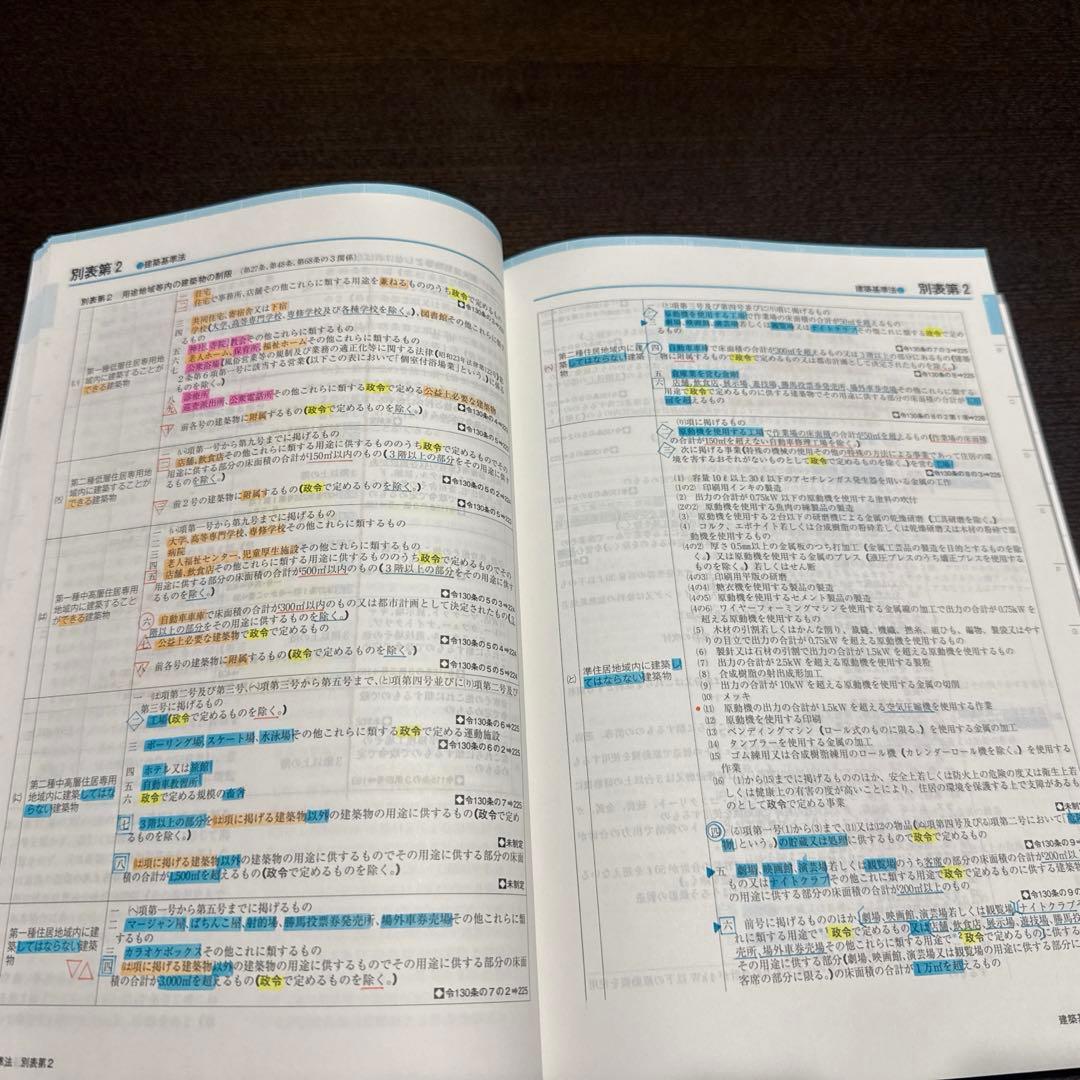 別表第2 ●建築基準法
別表第2 用途地域等内の建築物の制限 (第27条、第48条、第68条の3関係)
(い) 第一種低層住居専用地域内に建築することができる建築物
一 住宅
二 住宅で事務所、店舗その他これらに類する用途を兼ねるもののうち政令で定めるもの
令130条の3⇒224
三 共同住宅、寄宿舎又は下宿
四 学校(大学、高等専門学校、専修学校及び各種学校を除く。)、図書館その他これらに類するもの
五 神社、寺院、教会その他これらに類するもの
六 老人ホーム、保育所、福祉ホームその他これらに類するもの
七 公衆浴場(風俗営業等の規制及び業務の適正化等に関する法律(昭和23年法律第122号)第2条第6項第一号に該当する営業(以下この表において「個室付浴場業」という。)に係るものを除く。)
八 診療所
九 巡査派出所、公衆電話所その他これらに類する政令で定める公益上必要な建築物
令130条の4⇒224
十 前各号の建築物に附属するもの(政令で定めるものを除く。)
令130条の5⇒225
(ろ) 第二種低層住居専用地域内に建築することができる建築物
一 (い)項第一号から第九号までに掲げるもの
二 店舗、飲食店その他これらに類する用途に供するもののうち政令で定めるものでその用途に供する部分の床面積の合計が150㎡以内のもの(3階以上の部分をその用途に供するものを除く。)
令130条の5の2⇒225
三 前2号の建築物に附属するもの(政令で定めるものを除く。)
令130条の5⇒225
(は) 第一種中高層住居専用地域内に建築することができる建築物
一 (い)項第一号から第九号までに掲げるもの
二 大学、高等専門学校、専修学校その他これらに類するもの
三 病院
四 老人福祉センター、児童厚生施設その他これらに類するもの
五 店舗、飲食店その他これらに類する用途に供するもののうち政令で定めるものでその用途に供する部分の床面積の合計が500㎡以内のもの(3階以上の部分をその用途に供するものを除く。)
令130条の5の3⇒225
六 自動車車庫で床面積の合計が300㎡以内のもの又は都市計画として決定されたもの(3階以上の部分をその用途に供するものを除く。)
七 公益上必要な建築物で政令で定めるもの
令130条の5の4⇒225
八 前各号の建築物に附属するもの(政令で定めるものを除く。)
令130条の5の5⇒225
(に) 第二種中高層住居専用地域内に建築してはならない建築物
一 (ほ)項第二号及び第三号、(へ)項第三号から第五号まで、(と)項第四号並びに(り)項第二号及び第三号に掲げるもの
二 工場(政令で定めるものを除く。)
令130条の6⇒225
三 ボーリング場、スケート場、水泳場その他これらに類する政令で定める運動施設
令130条の6の2⇒225
四 ホテル又は旅館
五 自動車教習所
六 政令で定める規模の畜舎
令130条の7⇒225
七 3階以上の部分を(は)項に掲げる建築物以外の建築物の用途に供するもの(政令で定めるものを除く。)
未制定
八 (は)項に掲げる建築物以外の建築物の用途に供するものでその用途に供する部分の床面積の合計が1,500㎡を超えるもの(政令で定めるものを除く。)
未制定
第一種住居地域内に建築してはならない建築物
一 (へ)項第一号から第五号までに掲げるもの
二 マージャン屋、ぱちんこ屋、射的場、勝馬投票券発売所、場外車券売場その他これらに類するもの
三 カラオケボックスその他これに類するもの
四 (は)項に掲げる建築物以外の建築物の用途に供するものでその用途に供する部分の床面積の合計が3,000㎡を超えるもの(政令で定めるものを除く。)
令130条の7の2⇒225
準法 別表第2
建築基準法● 別表第2
(へ) 第二種住居地域内に建築してはならない建築物
一 (と)項第三号及び第四号並びに(り)項に掲げるもの
二 原動機を使用する工場で作業場の床面積の合計が50㎡を超えるもの
三 劇場、映画館、演芸場若しくは観覧場又はナイトクラブその他これに類する政令で定めるもの
令130条の7の3⇒225
四 自動車車庫で床面積の合計が300㎡を超えるもの又は3階以上の部分にあるもの(建築物に附属するもので政令で定めるもの又は都市計画として決定されたものを除く。)
令130条の8⇒226
五 倉庫業を営む倉庫
六 店舗、飲食店、展示場、遊技場、勝馬投票券発売所、場外車券売場その他これらに類する用途で政令で定めるものに供する建築物でその用途に供する部分の床面積の合計が1万㎡を超えるもの
令130条の8の2第1項⇒226
(と) 準住居地域内に建築してはならない建築物
一 (り)項に掲げるもの
二 原動機を使用する工場で作業場の床面積の合計が50㎡を超えるもの(作業場の床面積の合計が150㎡を超えない自動車修理工場を除く。)
三 次に掲げる事業(特殊の機械の使用その他の特殊の方法による事業であって住居の環境を害するおそれがないものとして政令で定めるものを除く。)を営む工場
令130条の8の3⇒226
(1) 容量10ℓ以上30ℓ以下のアセチレンガス発生器を用いる金属の工作
(1の2) 印刷用インキの製造
(2) 出力の合計が0.75kW以下の原動機を使用する塗料の吹付
(2の2) 原動機を使用する魚肉の練製品の製造
(3) 原動機を使用する2台以下の研磨機による金属の乾燥研磨(工具研磨を除く。)
(4) コルク、エボナイト若しくは合成樹脂の粉砕若しくは乾燥研磨又は木材の粉砕で原動機を使用するもの
(4の2) 厚さ0.5㎜以上の金属板のつち打加工(金属工芸品の製造を目的とするものを除く。)又は原動機を使用する金属のプレス(液圧プレスのうち矯正プレスを使用するものを除く。)若しくはせん断
(4の3) 印刷用平版の研磨
(4の4) 糖衣機を使用する製品の製造
(4の5) 原動機を使用するセメント製品の製造
(4の6) ワイヤーフォーミングマシンを使用する金属線の加工で出力の合計が0.75kWを超える原動機を使用するもの
(5) 木材の引割若しくはかんな削り、裁縫、機織、撚糸、組ひも、編物、製袋又はやすりの目立で出力の合計が0.75kWを超える原動機を使用するもの
(6) 製針又は石材の引割で出力の合計が1.5kWを超える原動機を使用するもの
(7) 出力の合計が2.5kWを超える原動機を使用する製粉
(8) 合成樹脂の射出成形加工
(9) 出力の合計が10kWを超える原動機を使用する金属の切削
(10) メッキ
(11) 原動機の出力の合計が1.5kWを超える空気圧縮機を使用する作業
(12) 原動機を使用する印刷
(13) ベンディングマシン(ロール式のものに限る。)を使用する金属の加工
(14) タンブラーを使用する金属の加工
(15) ゴム練用又は合成樹脂練用のロール機(カレンダーロール機を除く。)を使用する作業
(16) (1)から(15)までに掲げるもののほか、安全上若しくは防火上の危険の度又は衛生上若しくは健康上の有害の度が高いことにより、住居の環境を保護する上で支障があるものとして政令で定める事業
未制
四 (る)項第一号(1)から(3)まで、(11)又は(12)の物品((ぬ)項第四号及び(る)項第二号において「危険物」という。)の貯蔵又は処理に供するもので政令で定めるもの
令130条の9⇒
五 劇場、映画館、演芸場若しくは観覧場のうち客席の部分の床面積の合計が200㎡以上のもの又はナイトクラブその他これに類する用途で政令で定めるものに供する建築物でその用途に供する部分の床面積の合計が200㎡以上のもの
令130条の9の
六 前号に掲げるもののほか、劇場、映画館、演芸場若しくは観覧場、ナイトクラブその他これに類する用途で*1政令で定めるもの又は店舗、飲食店、展示場、遊技場、勝馬投票券発売所、場外車券売場その他これらに類する用途で*2政令で定めるものに供する建築物でその用途に供する部分(劇場、映画館、演芸場又は観覧場の用途に供する部分にあっては、客席の部分に限る。)の床面積の合計が1万㎡を超えるもの
建築基